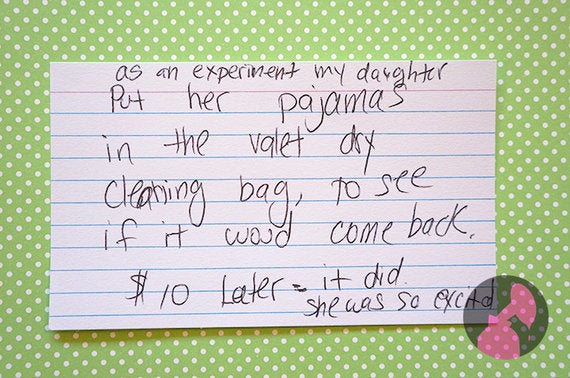 as an experiment my daughter
Put her pajamas
in the valet dry
cleaning bag, to see
if it woud come back.
$10 Later = it did.
she was so excitd